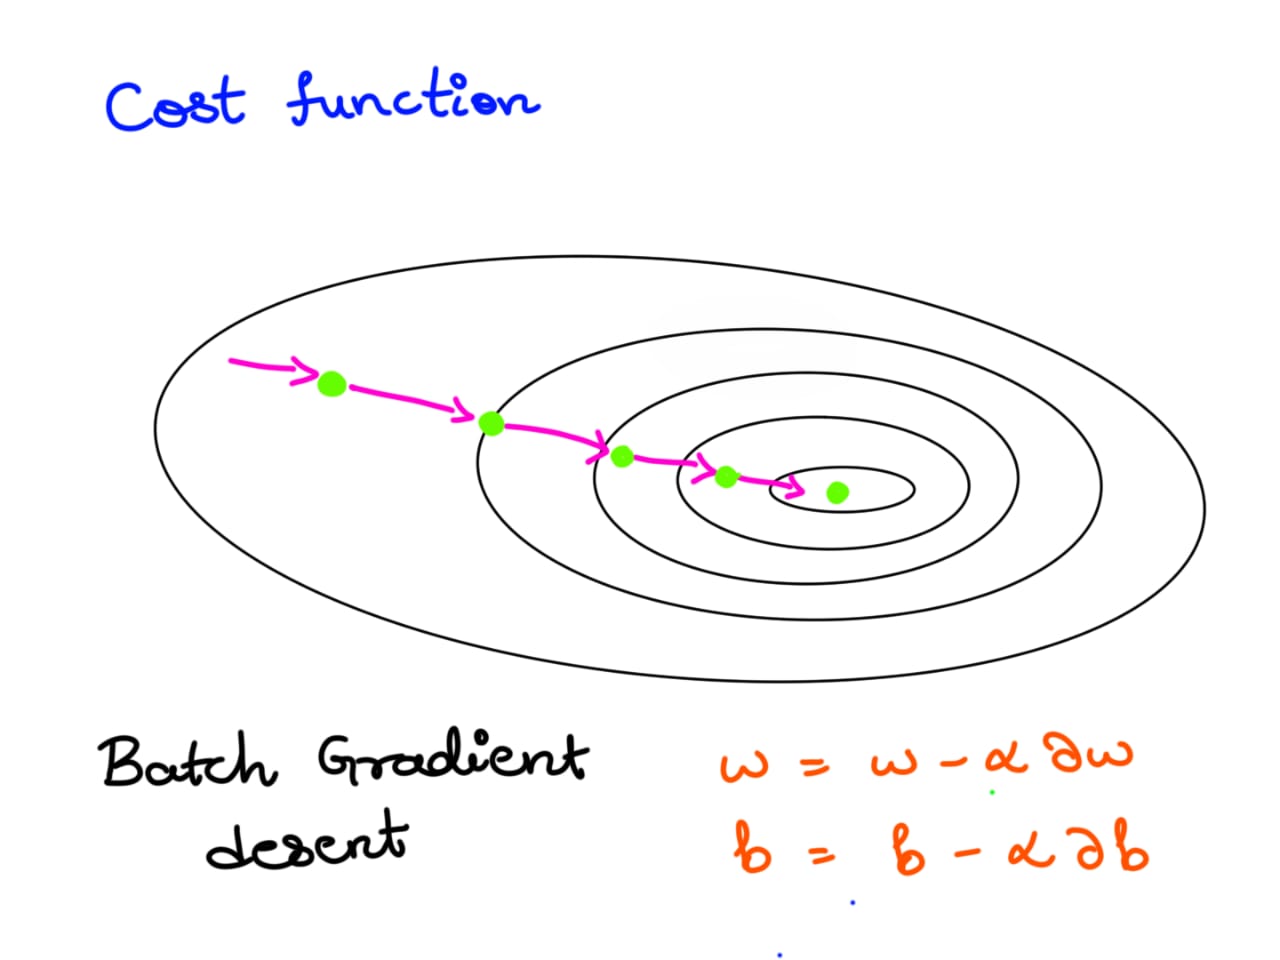 Cost function
Batch Gradient
desent
w = w - α ∂w
b = b - α ∂b